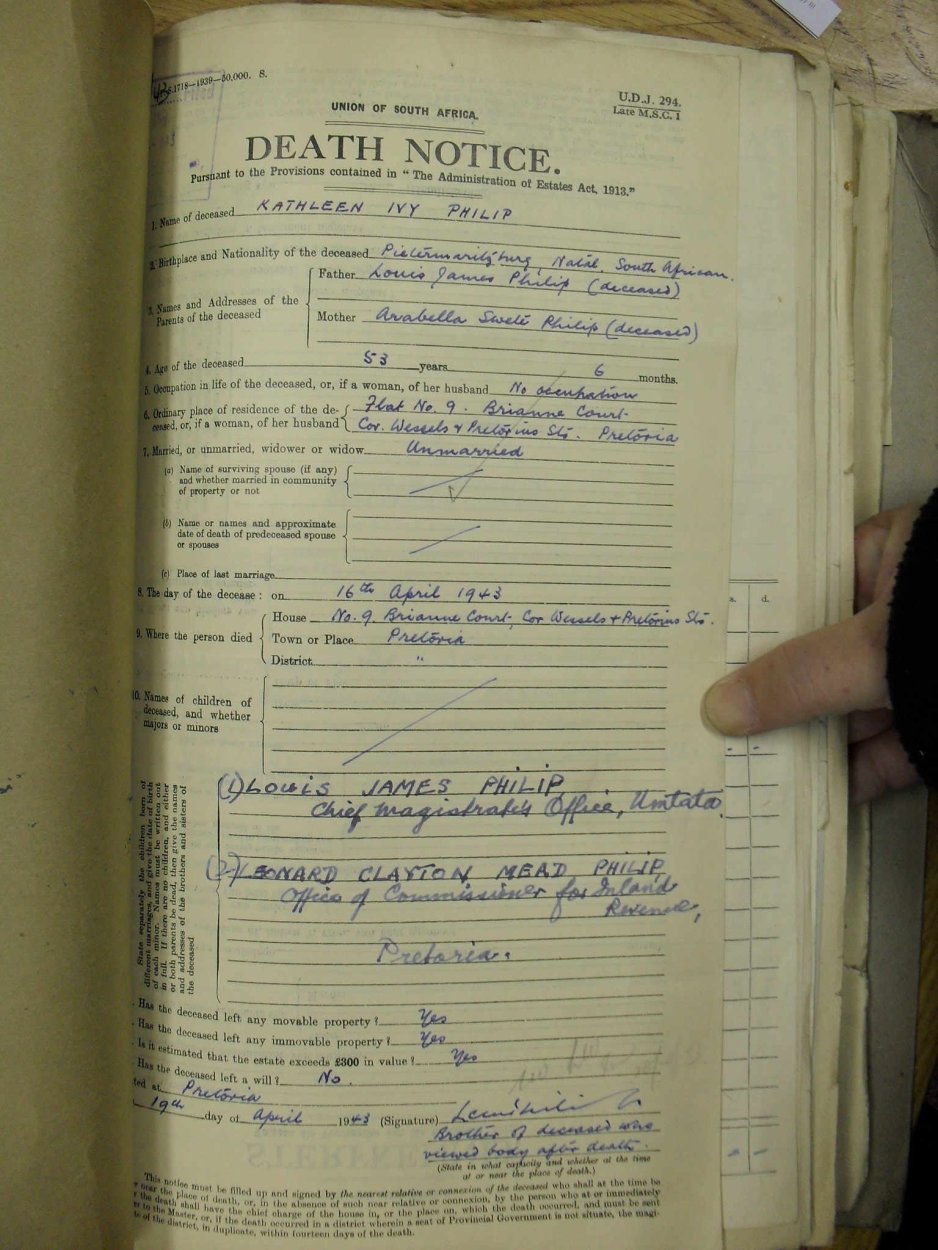 S.1718—1939—50,000. S.
U.D.J. 294.
Late M.S.C. 1
UNION OF SOUTH AFRICA.
DEATH NOTICE.
Pursuant to the Provisions contained in "The Administration of Estates Act, 1913."
1. Name of deceased KATHLEEN IVY PHILIP
2. Birthplace and Nationality of the deceased Pietermaritzburg, Natal, South African.
3. Names and Addresses of the Parents of the deceased
Father Louis James Philip (deceased)
Mother Arabella Swete Philip (deceased)
4. Age of the deceased 53 years 6 months.
5. Occupation in life of the deceased, or, if a woman, of her husband No occupation
6. Ordinary place of residence of the de- Flat No. 9. Brianne Court
ceased, or, if a woman, of her husband Cor. Wessels & Pretorius Sts. Pretoria
7. Married, or unmarried, widower or widow Unmarried
(a) Name of surviving spouse (if any)
and whether married in community
of property or not
(b) Name or names and approximate
date of death of predeceased spouse
or spouses
(c) Place of last marriage
8. The day of the decease: on 16th April 1943
9. Where the person died
House No. 9. Brianne Court, Cor Wessels & Pretorius Sts.
Town or Place Pretoria
District "
10. Names of children of
deceased, and whether
majors or minors
State separately the children born of
different marriages, and give the date of birth
of each minor. Names must be written out
in full. If there are no children, and either
or both parents be dead, then give the names
and addresses of the brothers and sisters of
the deceased
(1) LOUIS JAMES PHILIP,
Chief Magistrate's Office, Umtata.
(2) LEONARD CLAYTON MEAD PHILIP,
Office of Commissioner for Inland
Revenue,
Pretoria.
Has the deceased left any movable property? Yes
Has the deceased left any immovable property? Yes
Is it estimated that the estate exceeds £300 in value? Yes
Has the deceased left a will? No.
ted at Pretoria
19th day of April 1943 (Signature)
Brother of deceased who
viewed body after death.
(State in what capacity and whether at the time
at or near the place of death.)
This notice must be filled up and signed by the nearest relative or connexion of the deceased who shall at the time be
near the place of death, or, in the absence of such near relative or connexion, by the person who at or immediately
the death shall have the chief charge of the house in, or the place on, which the death occurred, and must be sent
to the Master, or, if the death occurred in a district wherein a seat of Provincial Government is not situate, the magi-
of the district, in duplicate, within fourteen days of the death.
s. d.